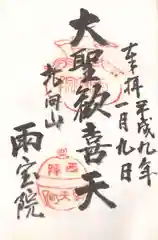 奉拝 平成九年
一月九日
大聖歓喜天
北向山
雨宝院